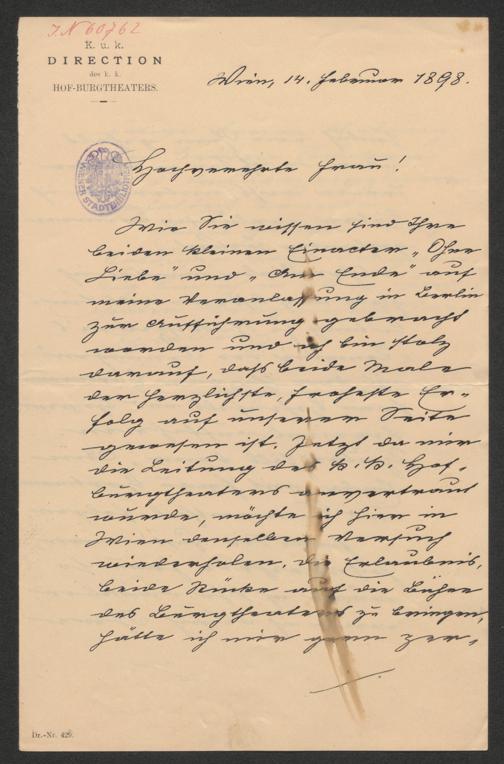 I N 60762
K. u. k.
DIRECTION
des k. k.
HOF-BURGTHEATERS.
Wien, 14. Februar 1898.
WIENER STADTBIBLIOTHEK
Hochverehrte Frau!
Wie Sie wissen sind Ihre
beiden kleinen Einacter „Ohne
Liebe" und „Am Ende" auf
meine Veranlassung in Berlin
zur Aufführung gebracht
worden und ich bin stolz
darauf, daß beide Male
der herzlichste, froheste Er-
folg auf unserer Seite
gewesen ist. Jetzt da mir
die Leitung des k. k. Hof-
burgtheaters anvertraut
wurde, möchte ich hier in
Wien denselben Versuch
wiederholen. Die Erlaubnis,
beide Stücke auf die Bühne
des Burgtheaters zu bringen,
hätte ich mir gern per-
Dr.-Nr. 429.